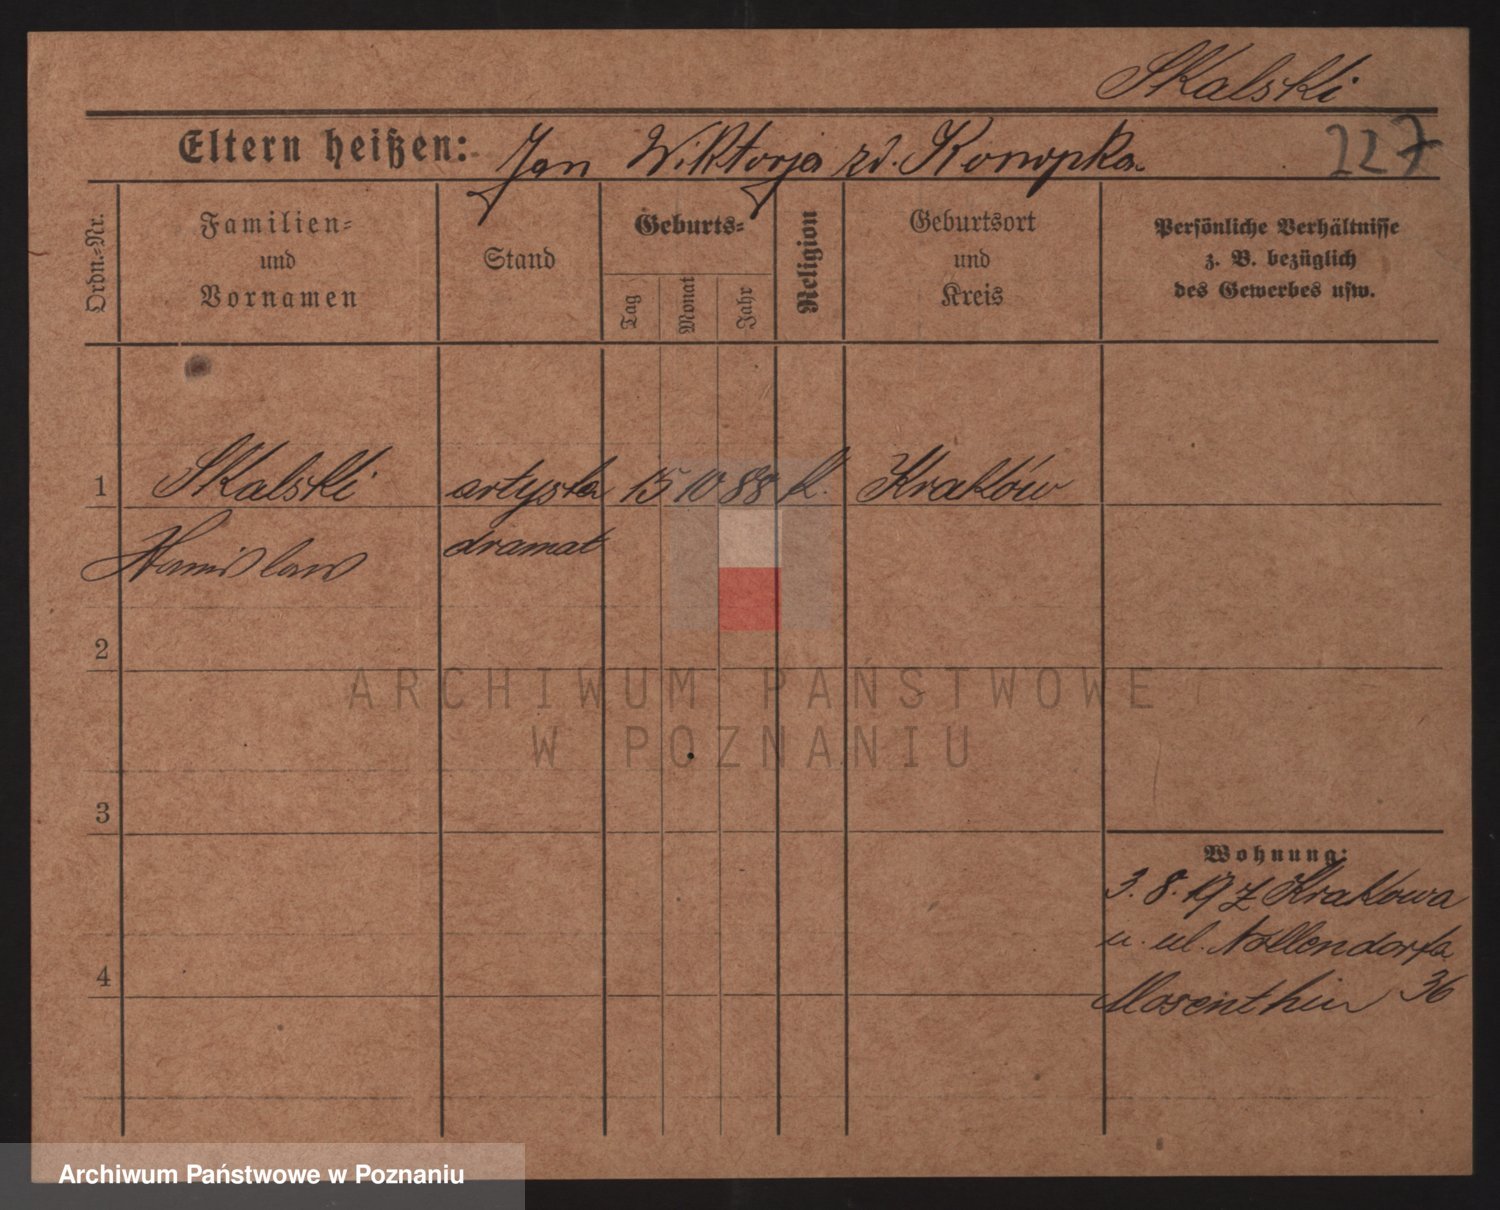 Skalski
Eltern heißen: Jan Wiktorja zd. Konopka
227
Ordn.-Nr.
Familien-
und
Vornamen
Stand
Geburts-
Tag
Monat
Jahr
Religion
Geburtsort
und
Kreis
Persönliche Verhältnisse
z. B. bezüglich
des Gewerbes usw.
1 Skalski artysta 15 10 88 k. Kraków
Stanislaw dramat
2
ARCHIWUM PAŃSTWOWE
W POZNANIU
3
Wohnung:
3. 8. 19 z Krakowa
u. ul. Nollendorfa
4
Mosenthin 36
Archiwum Państwowe w Poznaniu